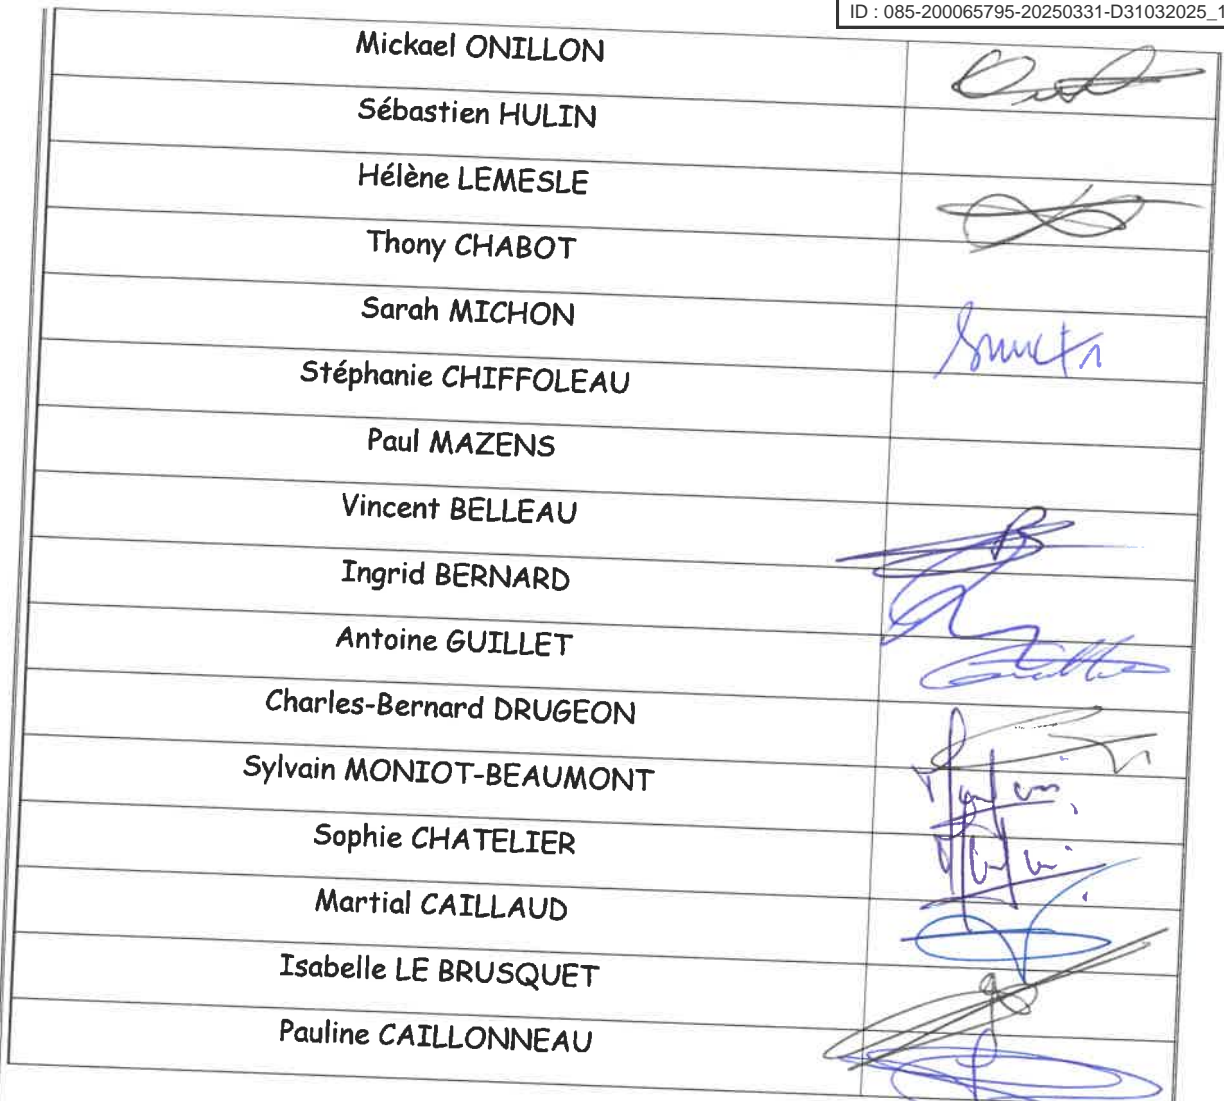 ID : 085-200065795-20250331-D31032025_1
Mickael ONILLON
Sébastien HULIN
Hélène LEMESLE
Thony CHABOT
Sarah MICHON
Stéphanie CHIFFOLEAU
Paul MAZENS
Vincent BELLEAU
Ingrid BERNARD
Antoine GUILLET
Charles-Bernard DRUGEON
Sylvain MONIOT-BEAUMONT
Sophie CHATELIER
Martial CAILLAUD
Isabelle LE BRUSQUET
Pauline CAILLONNEAU